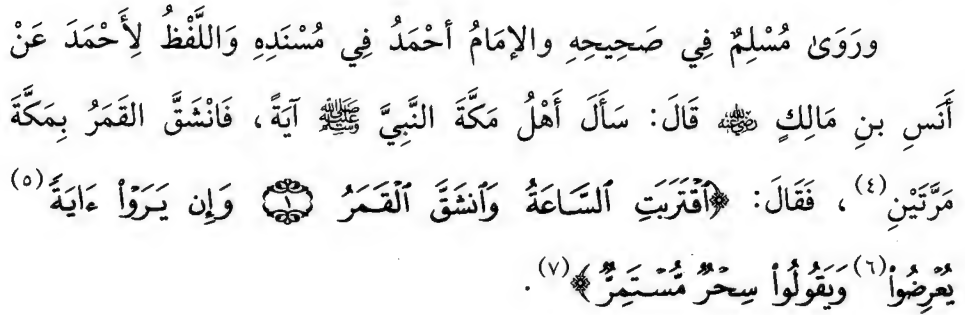 ورَوَىٰ مُسْلِمٌ فِي صَحِيحِهِ والإمَامُ أحْمَدُ فِي مُسْنَدِهِ وَاللَّفْظُ لِأَحْمَدَ عَنْ
أَنَسِ بنِ مَالِكٍ رضي الله عنه قَالَ: سَأَلَ أَهْلُ مَكَّةَ النَّبِيَّ ﷺ آيَةً، فَانْشَقَّ القَمَرُ بِمَكَّةَ
مَرَّتَيْنِ(٤)، فَقَالَ: ﴿ٱقْتَرَبَتِ ٱلسَّاعَةُ وَٱنشَقَّ ٱلْقَمَرُ ۝١ وَإِن يَرَوْا۟ ءَايَةً(٥)
يُعْرِضُوا۟(٦) وَيَقُولُوا۟ سِحْرٌ مُّسْتَمِرٌّ﴾(٧).